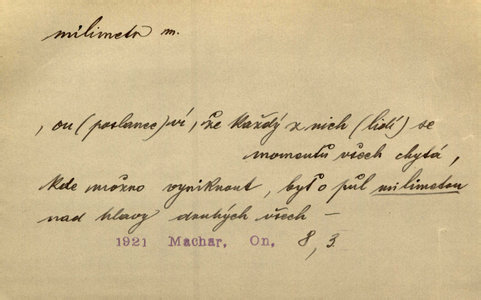 milimetr m.
, on (poslanec) ví, že každý z nich (lidí) se
momentů všech chytá,
kde možno vyniknout, byť o půl milimetru
nad hlavy druhých všech —
1921 Machar, On. 8, 3.